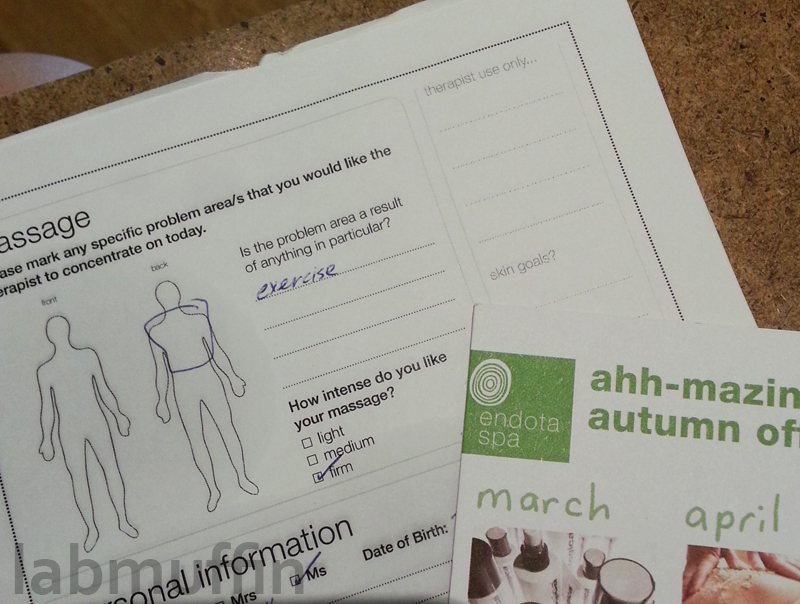 therapist use only...
assage
ase mark any specific problem area/s that you would like the
erapist to concentrate on today.
front
back
Is the problem area a result
of anything in particular?
exercise
skin goals?
How intense do you like
your massage?
light
medium
firm
rsonal information
Mrs
Ms
Date of Birth:
endota
spa
ahh-mazin
autumn of
march
april
labmuffin